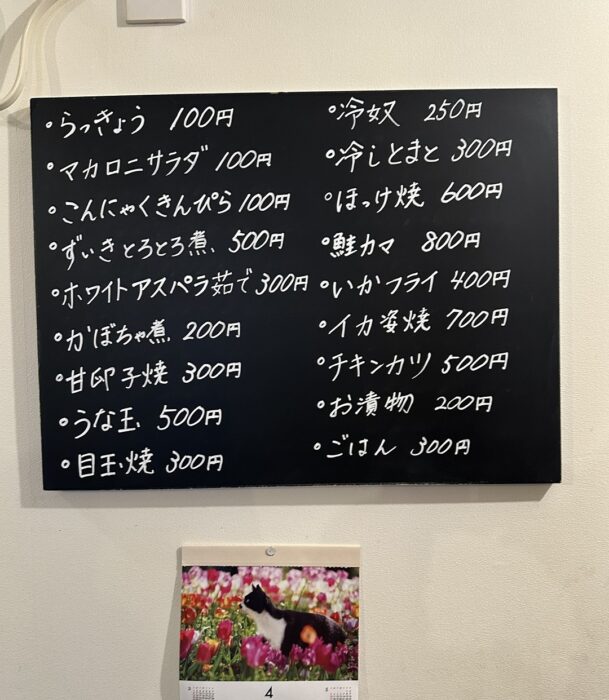 °らっきょう 100円
°マカロニサラダ 100円
°こんにゃくきんぴら100円
°ずいきとろとろ煮 500円
°ホワイトアスパラ茹で300円
°かぼちゃ煮 200円
°甘卵子焼 300円
°うな玉 500円
°目玉焼 300円
°冷奴 250円
°冷しとまと 300円
°ほっけ焼 600円
°鮭カマ 800円
°いかフライ 400円
°イカ姿焼 700円
°チキンカツ 500円
°お漬物 200円
°ごはん 300円
4